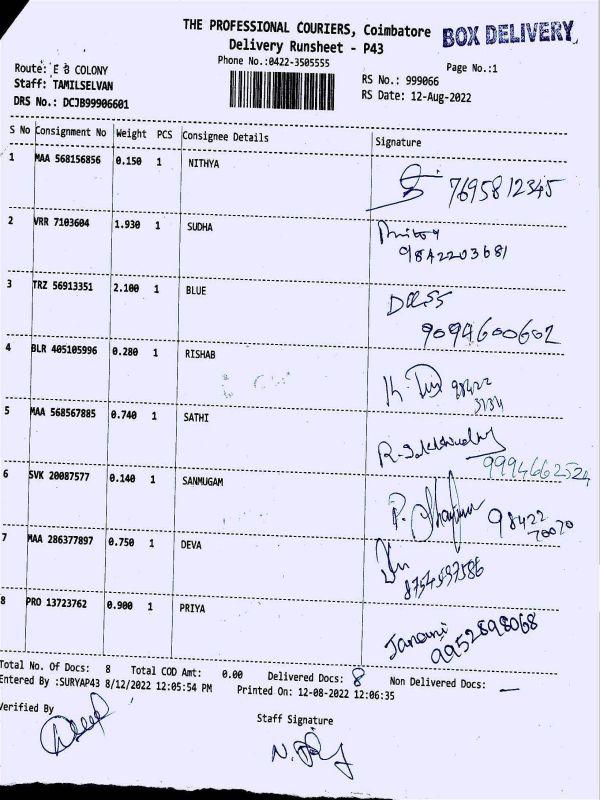 THE PROFESSIONAL COURIERS, Coimbatore
BOX DELIVERY
Delivery Runsheet - P43
Phone No.:0422-3505555
Page No.:1
Route: E B COLONY
RS No.: 999066
Staff: TAMILSELVAN
RS Date: 12-Aug-2022
DRS No.: DCJB99906601
S No Consignment No Weight PCS Consignee Details Signature
1 MAA 568156856 0.150 1 NITHYA
7695812345
2 VRR 7103604 1.930 1 SUDHA
9842203681
3 TRZ 56913351 2.100 1 BLUE
9094600602
4 BLR 405105996 0.280 1 RISHAB
98422
5 MAA 568567885 0.740 1 SATHI
9994662524
6 SVK 20087577 0.140 1 SANMUGAM
98422
70070
7 MAA 286377897 0.750 1 DEVA
8 PRO 13723762 0.900 1 PRIYA
Janani
9952898068
Total No. Of Docs: 8 Total COD Amt: 0.00 Delivered Docs: 8 Non Delivered Docs: —
Entered By :SURYAP43 8/12/2022 12:05:54 PM Printed On: 12-08-2022 12:06:35
Verified By
Staff Signature